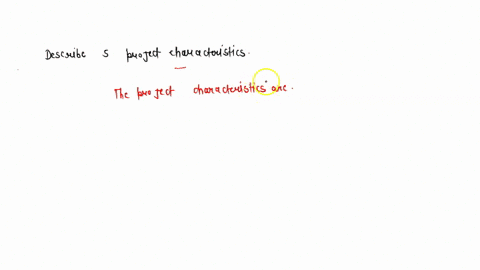 Describe 5 project characteristics.
The project characteristics are.